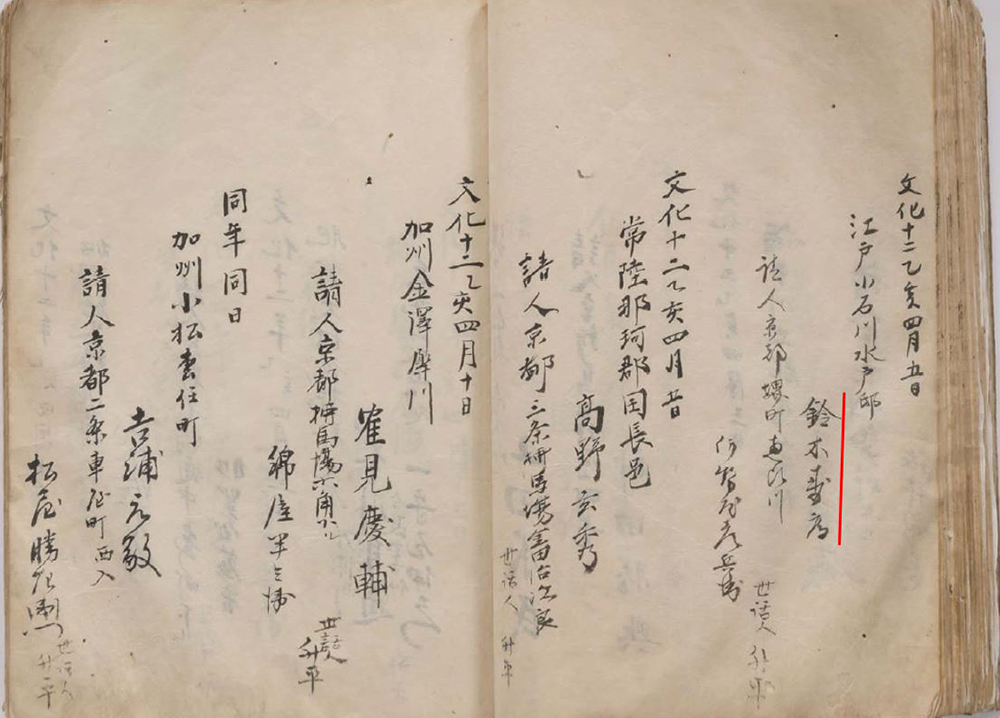 文化十二乙亥四月五日
江戸小石川水戸邸
鈴木
請人京都堺町夷川
世話人 升平
文化十二乙亥四月
常陸那珂郡国長邑
高野玄秀
請人京都三条柳馬場
世話人 升平
文化十二乙亥四月十日
加州金澤犀川
崔見慶輔
請人京都柳馬場六角下ル
綿屋半兵衛
世話人 升平
同年同日
加州小松素住町
吉浦元敬
請人京都二条車屋町西入
松屋勝
世話人 升平